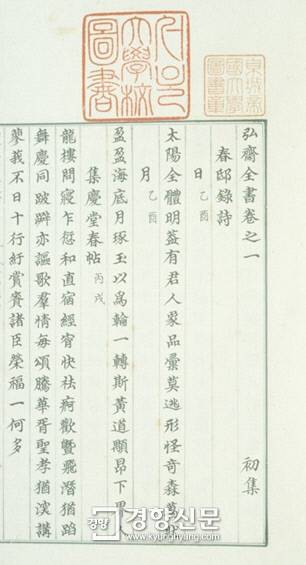 京城帝
國大學
圖書章
서울
大學校
圖書
弘齋全書卷之一 初集
春邸錄詩
日 乙酉
太陽全體明葢有君人象品彙莫逃形怪奇森萬
月 乙酉
盈盈海底月琢玉以爲輪一轉斯黃道顯昂下
集慶堂春帖 丙戌
龍樓問寢乍愆和直宿經宵快袪疴歡曁飛潛猶蹈
舞慶同跛躃亦謳歌羣情每頌騰華胥聖孝猶深講
蓼莪不日十行紆賞賚諸臣榮福一何多
경향 경향신문
www.kyunghyang.com